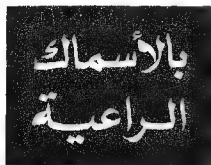 بالأسماك
الراعية